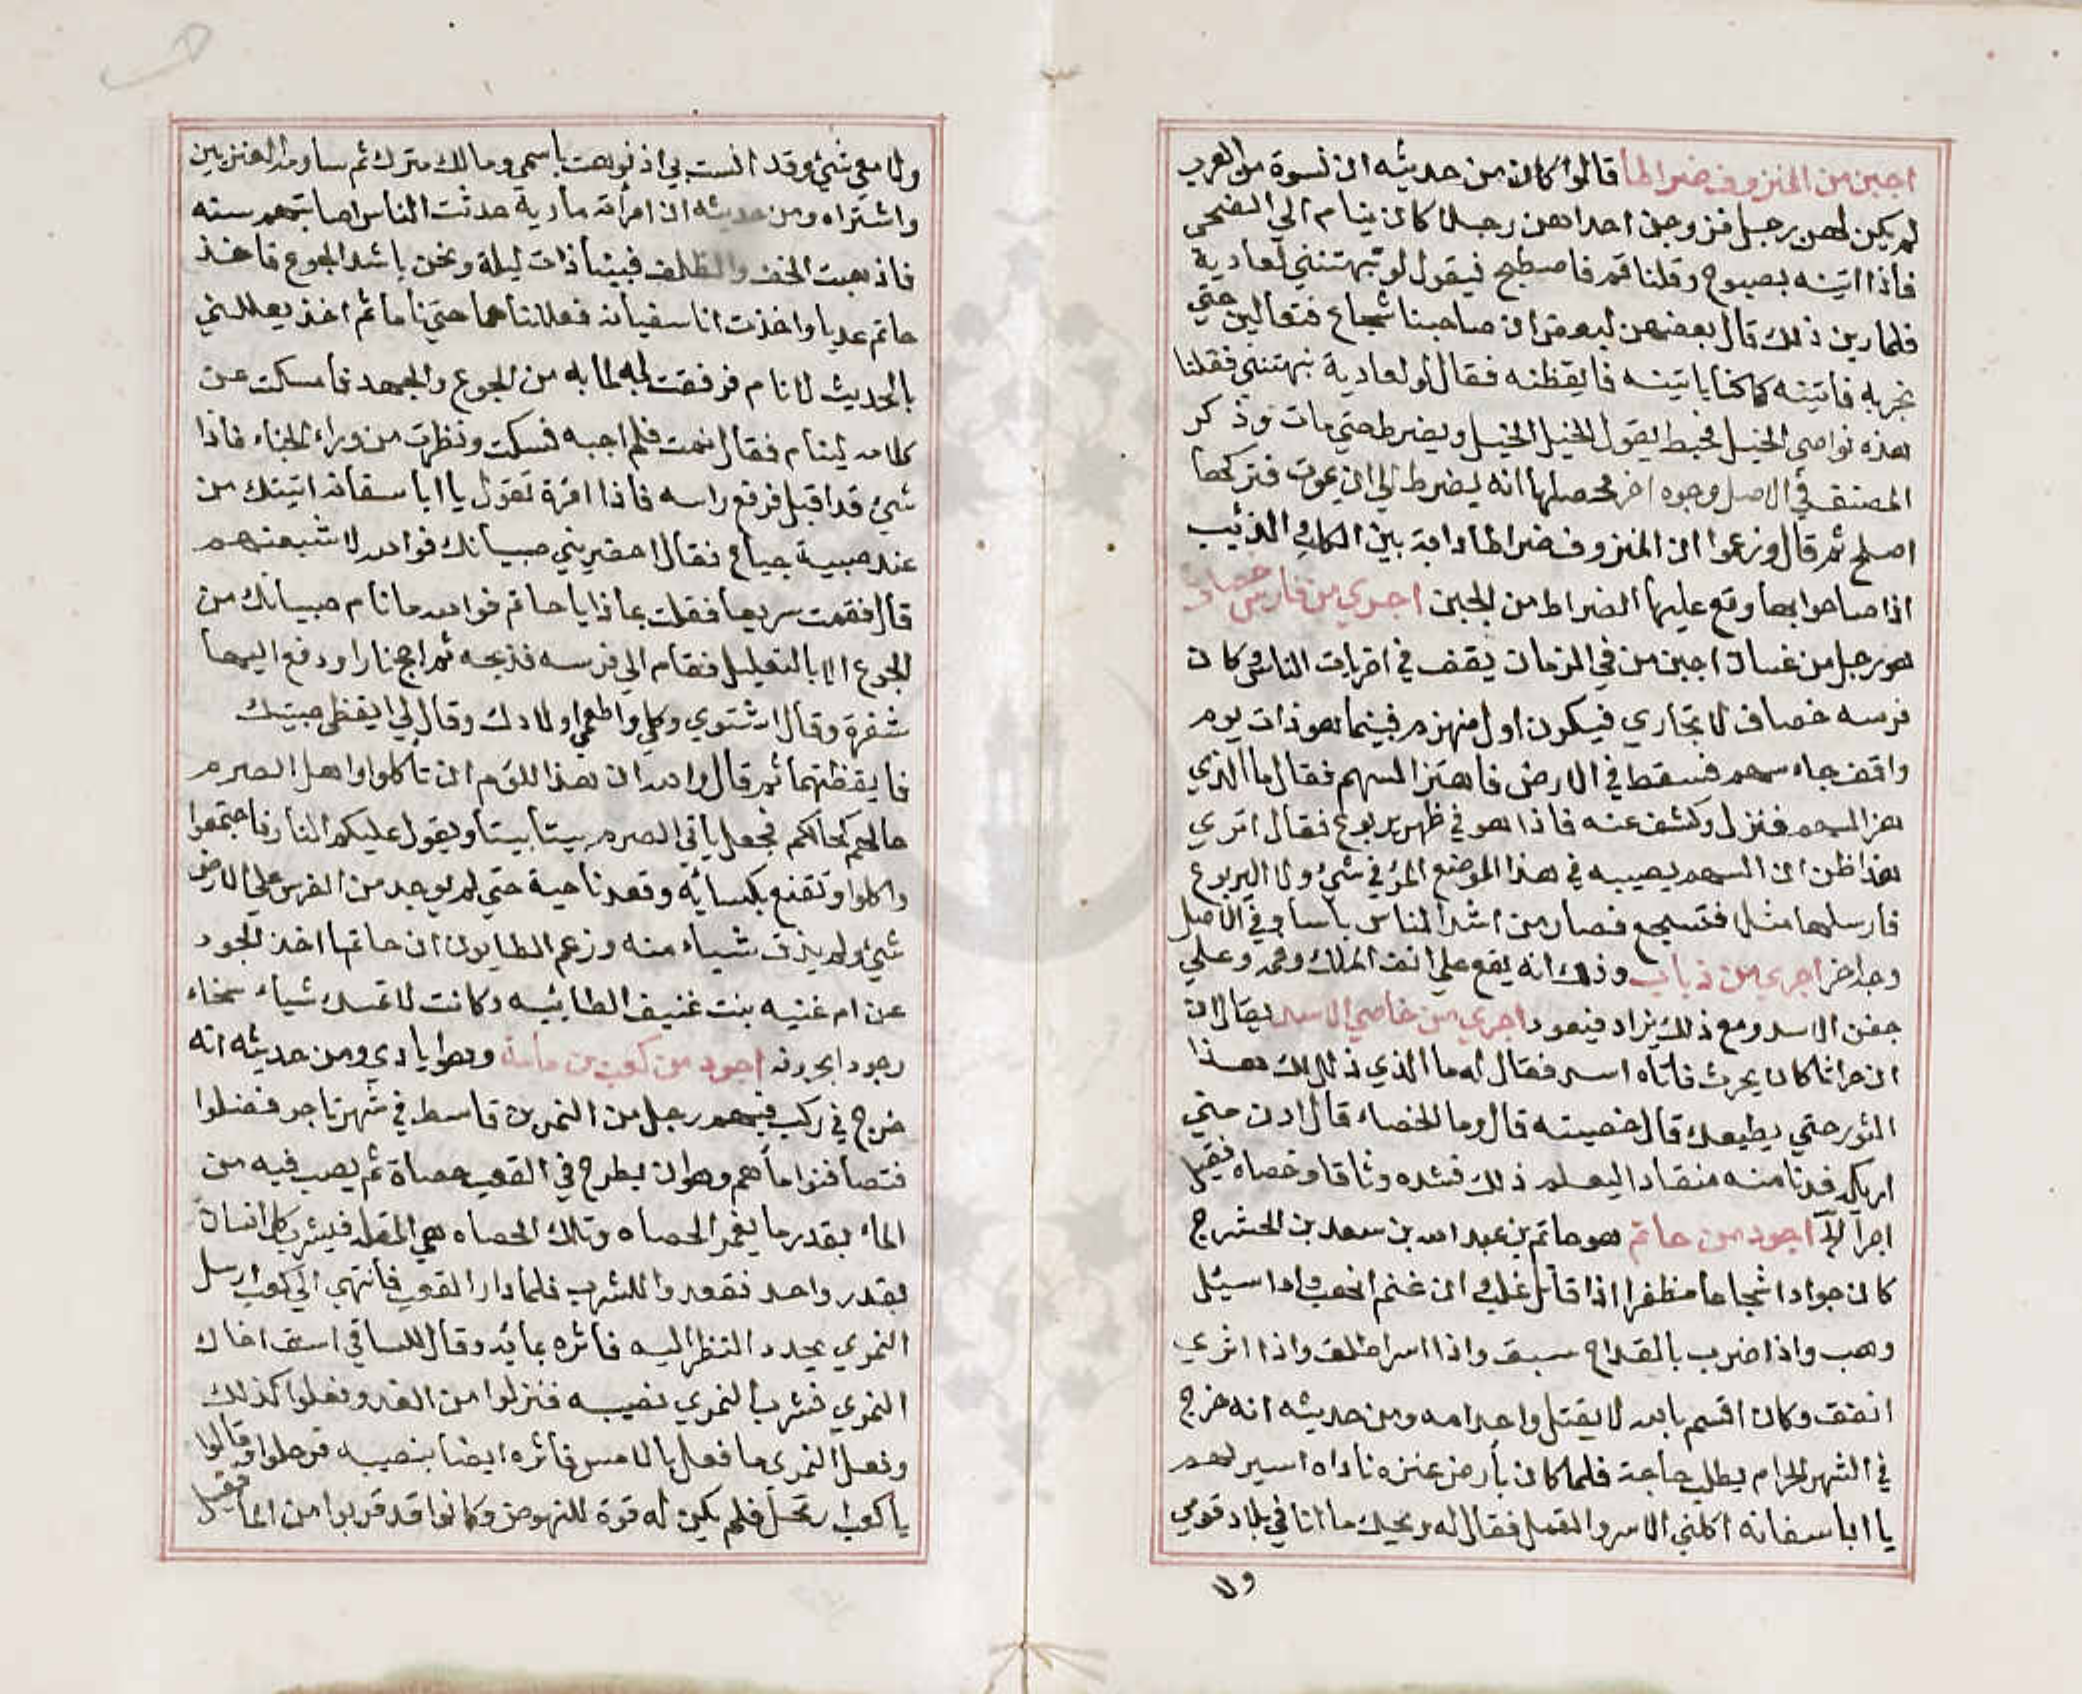 اجبن من المنزوف ضراطا قالوا كان من حديثه ان نسوة من العرب
لم يكن لهن رجل فزوجن احداهن رجلا كان ينام الي الضحي
فاذا اتينه بصبوح وقلنا قم فاصطبح فيقول لو نبهتنني لعادية
فلما رين ذلك قال بعضهن لبعض ان صاحبنا شجاع فتعالين حتي
نجربه فاتينه كما كنا ياتينه فايقظنه فقال لو لعادية نبهتنني فقلنا
هذه نواصي الخيل فجعل يقول الخيل الخيل ويضرط حتي مات وذكر
المصنف في الاصل وجوه اخر محصلها انه يضرط الي ان يموت فتركها
اصلح ثم قال وزعموا ان المنزوف ضراطا دابة بين الكلب والذئب
اذا صاحوا بها وقع عليها الضراط من الجبن اجري من فارس خصاف
هو رجل من غسان اجبن من في الزمان يقف في اخريات الناس وكان
فرسه خصاف لا تجاري فيكون اول منهزم فبينما هو ذات يوم
واقف جاه سهم فسقط في الارض فاهتز السهم فقال ما الذي
هز السهم فنزل وكشف عنه فاذا هو في ظهر يربوع فقال اتري
هذا ظن ان السهم يصيبه في هذا الموضع المرء في شيء ولا اليربوع
فارسلها مثلا فتشجع فصار من اشد الناس باسا وفي الاصل
وجه اخر اجري من ذباب وذلك انه يقع علي انف الملك وفمه وعلي
جفن الاسد ومع ذلك يزاد فيعود اجري من خاصي الاسد يقال ان
ان حراثا كان يحرث فاتاه اسد فقال له ما الذي ذلل لك هذا
الثور حتي يطيعك قال خصيته قال وما الخصاء قال ادن مني
اريكه فدنا منه منقادا ليعلم ذلك فشده وثاقا وخصاه فقيل
اجرأ الخ اجود من حاتم هو حاتم بن عبد الله بن سعد بن الحشرج
كان جوادا شجاعا مظفرا اذا قاتل غلب وان غنم انهب واذا سيئل
وهب واذا ضرب بالقداح سبق واذا اسر اطلق واذا اثري
انفق وكان اقسم بالله لا يقتل واحد امه ومن حديثه انه خرج
في الشهر الحرام يطلب حاجة فلما كان بأرض عنزه ناداه اسير لهم
يا ابا سفانه اكلني الاسر والقمل فقال له ويحك ما انا في بلاد قومي
ولا
ولا معي شيء وقد انست بي اذ نوهت باسمي ومالك مترك ثم ساوم العنزيين
واشتراه ومن حديثه ان امرأته مارية حدثت الناس اصابتهم سنه
فاذهبت الخف والظلف فبينا ذات ليلة ونحن باشد الجوع فاخذ
حاتم عديا واخذت انا سفيانه فعللناهما حتي ناما ثم اخذ يعللني
بالحديث لانام فرفقت له لما به من الجوع والجهد فامسكت عن
كلامه لينام فقال انمت فلم اجبه فسكت ونظرت من وراء الخباء فاذا
شيء قد اقبل فرفع راسه فاذا امرة تقول يا ابا سفانه اتيتك من
عند صبية جياع فقال احضريني صبيانك فوالله لاشبعنهم
قال فقمت سريعا فقلت بماذا يا حاتم فوالله ما نام صبيانك من
الجوع الا بالتعليل فقام الي فرسه فذبحه ثم اجج نارا ودفع اليها
شفرة وقال اشتوي وكلي واطعمي اولادك وقال لي ايقظي صبيتك
فايقظتهما ثم قال والله ان هذا للؤم ان تأكلوا واهل الصرم
حالهم كحالكم فجعل يأتي الصرم بيتا بيتا ويقول عليكم النار فاجتمعوا
واكلوا وتقنع بكسائه وقعد ناحية حتي لم يوجد من الفرس علي الارض
شيء ولم يذق شياء منه وزعم الطايون ان حاتما اخذ الجود
عن ام غنيه بنت غنيف الطائيه وكانت لا تمسك شياء سخاء
وجود اجود من كعب بن مامة وهو ايادي ومن حديثه انه
خرج في ركب فيهم رجل من النمر بن قاسط في شهر ناجر فضلوا
فتصافنوا ماهم وهو ان يطرح في القعب حصاة ثم يصب فيه من
الماء بقدر ما يغمر الحصاه وتلك الحصاه هي المقله فيشرب كل انسان
بقدر واحد فقعدوا للشرب فلما دار القعب فانتهي الي كعب ارسل
النمري يحدد النظر اليه فاثره بمائه وقال للساقي اسق اخاك
النمري فشرب النمري نصيبه فنزلوا من الغد وفعلوا كذلك
وفعل النمري ما فعل بالامس فأثره ايضا بنصيبه فرحلوا وقالوا
يا كعب ارتحل فلم يكن له قوة للنهوض وكانوا قد قربوا من الماء فقيل